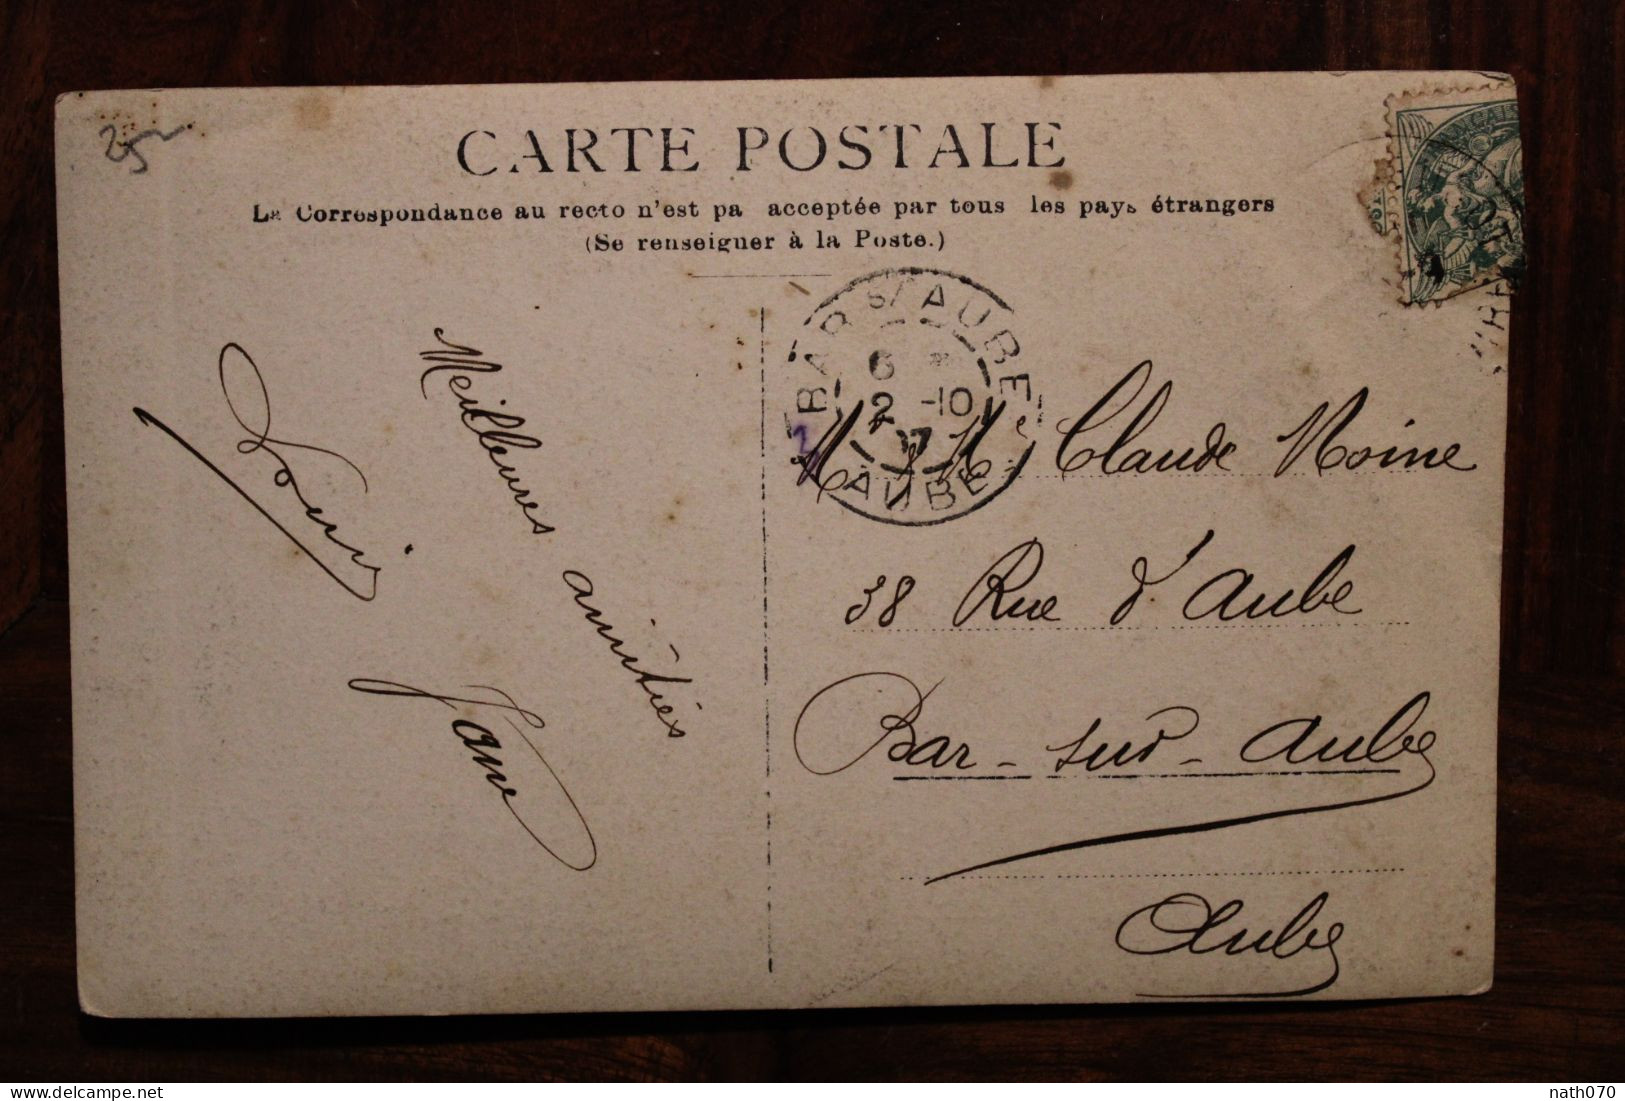 25
CARTE POSTALE
La Correspondance au recto n'est pa acceptée par tous les pays étrangers
(Se renseigner à la Poste.)
BAR S/ AUBE
6 *
2 -10
07
AUBE
Meilleures amitiés
Louis
Jane
M. & Me Claude Moine
38 Rue d'Aube
Bar-sur-Aube
Aube
nath070